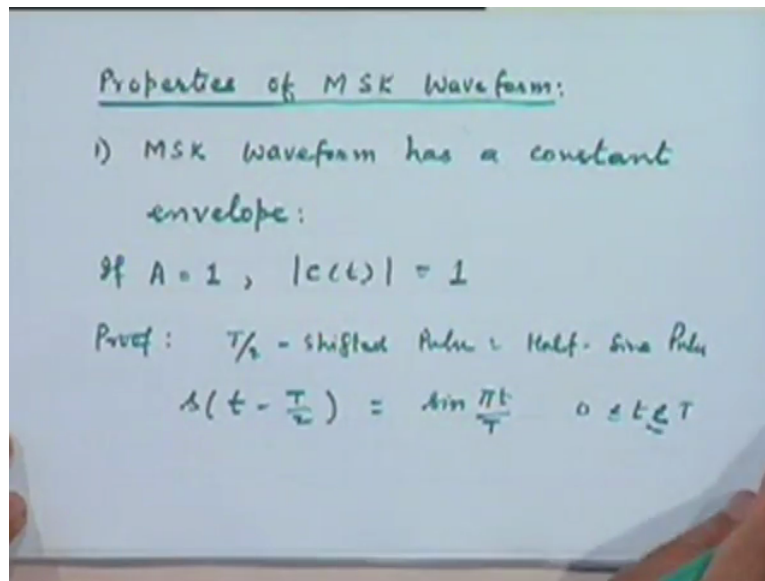 Properties of MSK Waveform:
1) MSK Waveform has a constant
envelope:
If A = 1, |c(t)| = 1
Proof: T/2 - Shifted Pulse : Half-Sine Pulse
s(t - T/2) = sin πt/T 0 ≤ t ≤ T